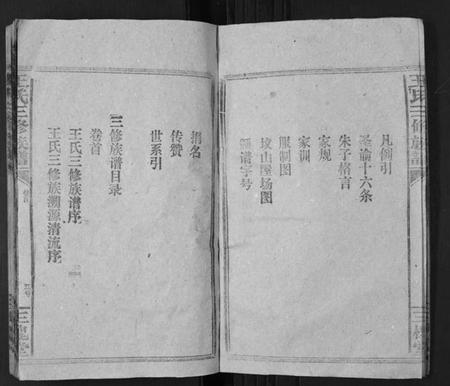 王氏三修族谱
三槐堂
凡例引
圣谕十六条
朱子格言
家规
家训
服制图
坟山屋场图
领谱字号
捐名
传赞
世系引
三修族谱目录
卷首
王氏三修族谱序
王氏三修族溯源清流序
王氏三修族谱
三槐堂